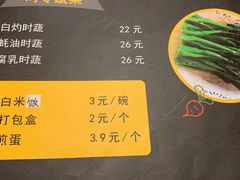 时蔬
白灼时蔬 22 元
蚝油时蔬 26 元
腐乳时蔬 26 元
白米饭 3元/碗
打包盒 2元/个
煎蛋 3.9元/个